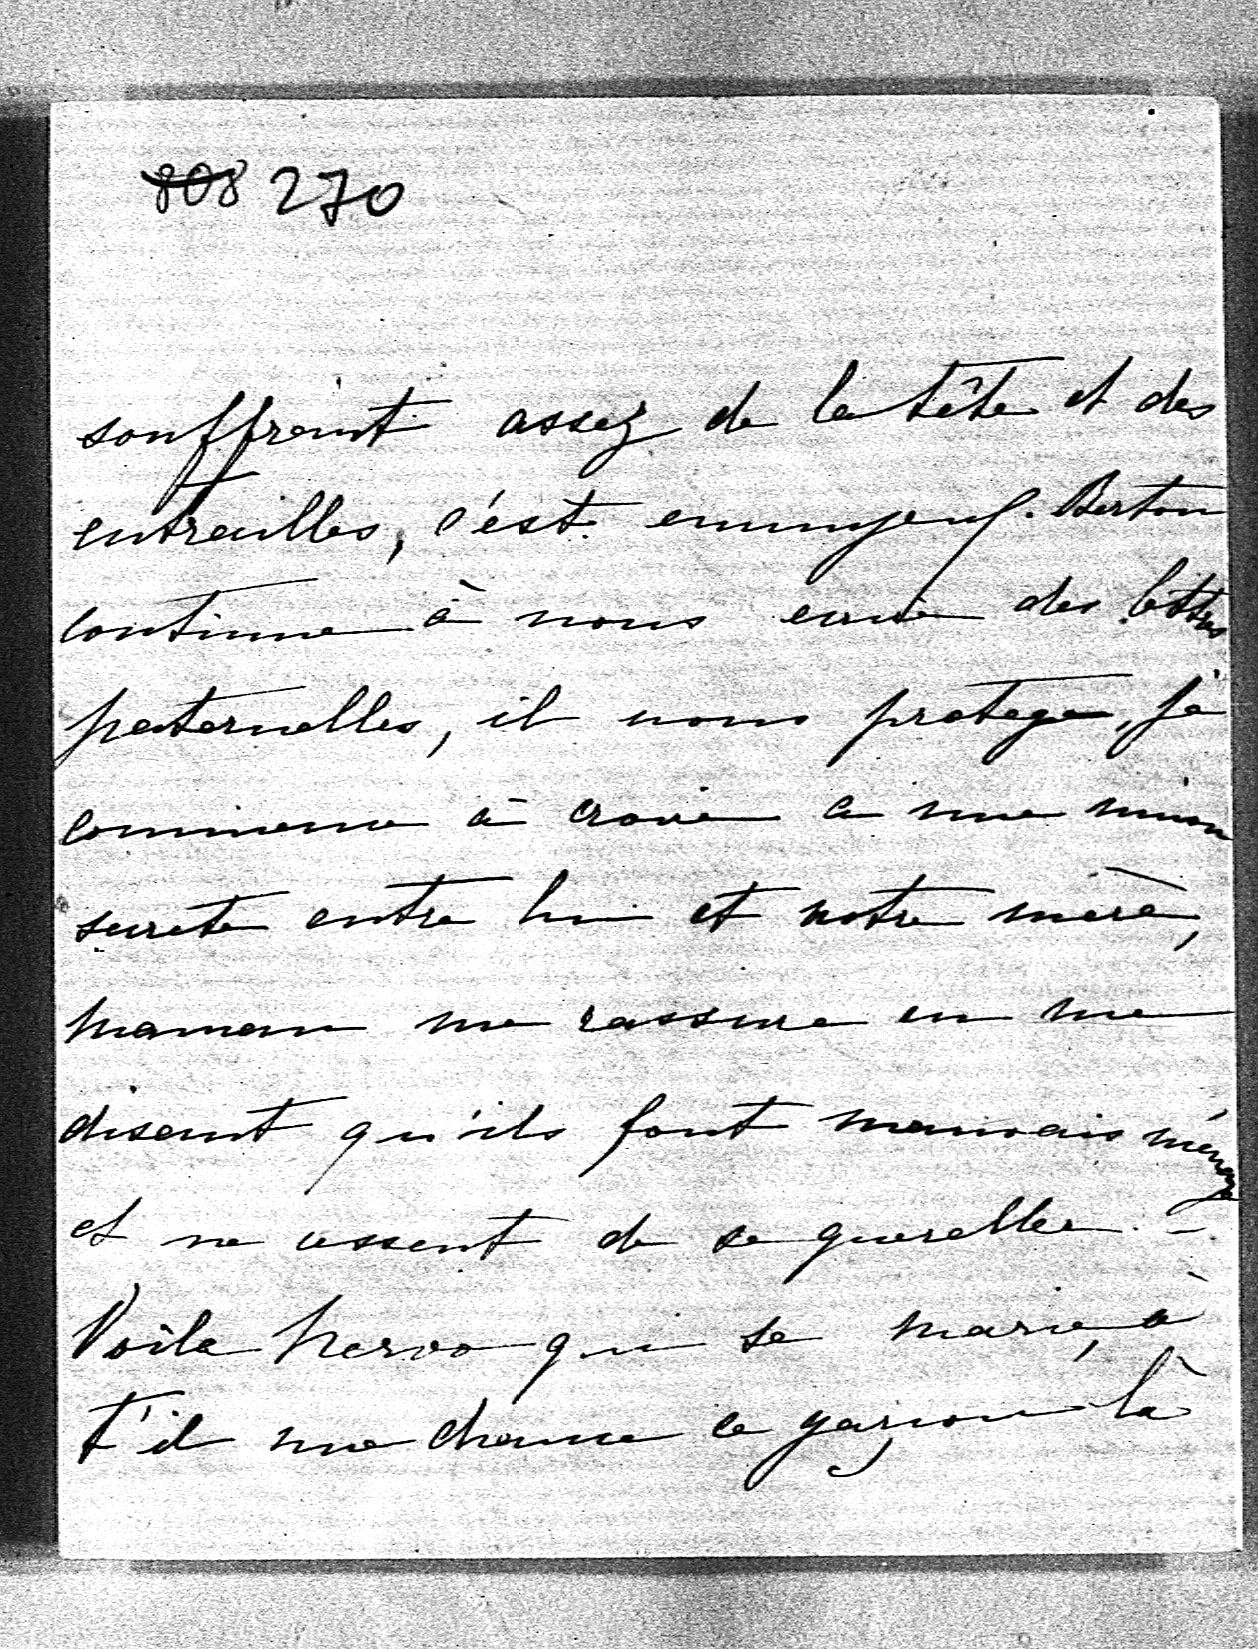 808 270
souffrant assez de la tête et des
entrailles, c'est ennuyeux. Berton
continue à nous ecrire des lettres
paternelles, il nous protege, je
commence à croire a une union
secrete entre lui et notre mère,
maman me rassure en me
disant qu'ils font mauvais ménage
et ne cessent de se quereller. -
Voila hervo qui se marie, a
t'il une chance ce garçon là